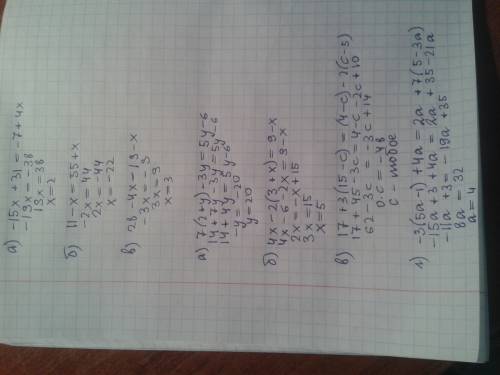 а) -15x + 31 = -7 + 4x
-19x = -38
19x = 38
x = 2
б) 11 - x = 55 + x
-2x = 44
2x = -44
x = -22
в) 28 - 4x = 19 - x
-3x = -9
3x = 9
x = 3
а) 7(2+y) - 3y = 5y - 6
14 + 7y - 3y = 5y - 6
14 + 4y = 5y - 6
-y = -20
y = 20
б) 4x - 2(3+x) = 9 - x
4x - 6 - 2x = 9 - x
2x = -x + 15
3x = 15
x = 5
в) 17 + 3(15 - c) = (4-c) - 2(c-5)
17 + 45 - 3c = 4 - c - 2c + 10
62 - 3c = -3c + 14
0·c = -48
c - любое
г) -3(5a-1) + 4a = 2a + 7(5-3a)
-15a + 3 + 4a = 2a + 35 - 21a
-11a + 3 = -19a + 35
8a = 32
a = 4